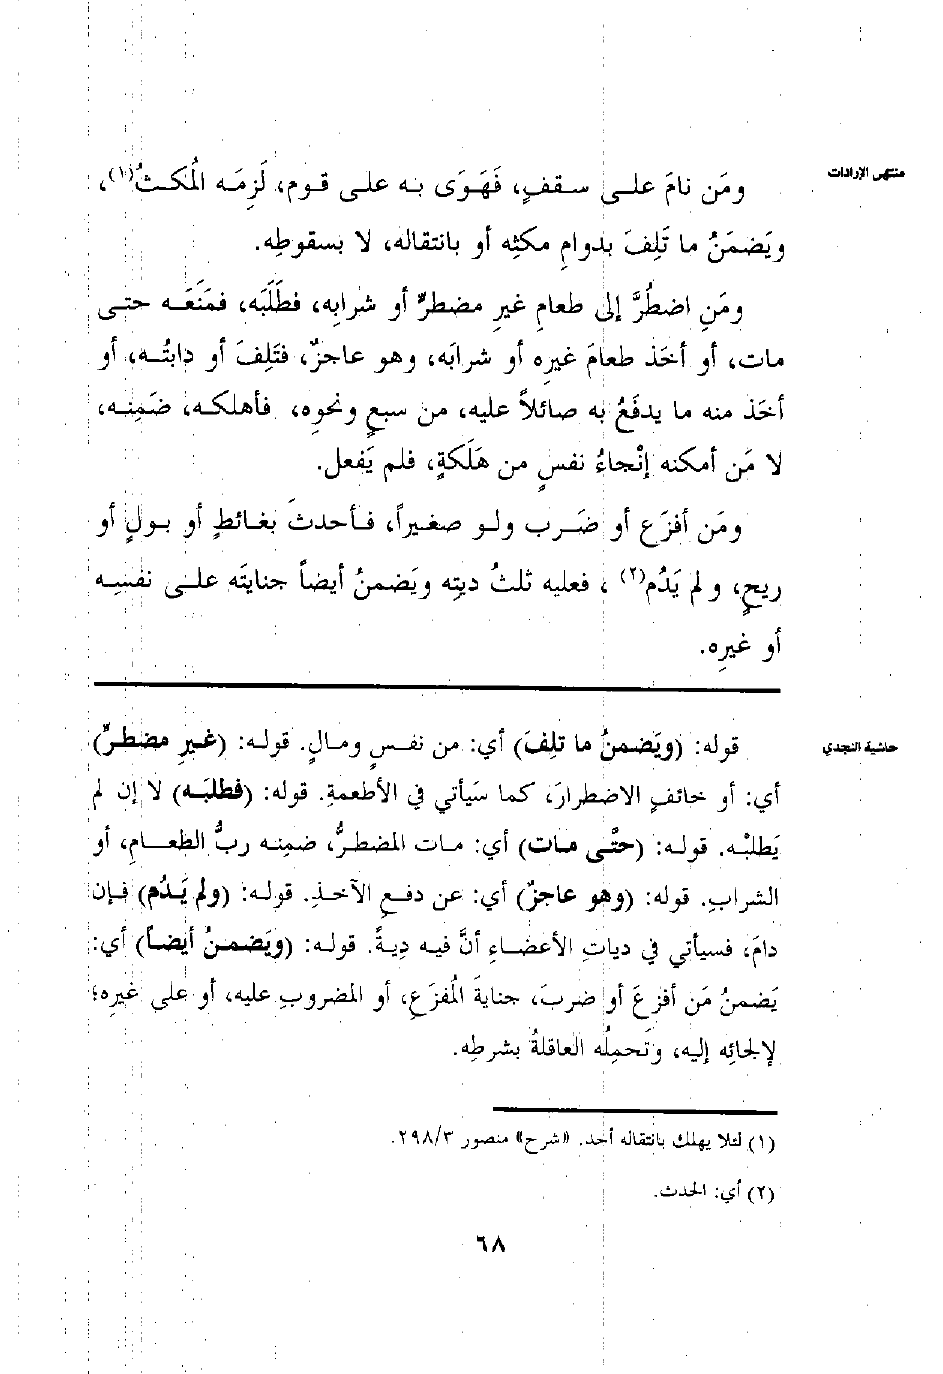 منتهى الإرادات
ومَن نامَ على سقفٍ، فَهَوَى به على قوم، لَزِمَه المُكثُ(١)،
ويَضمَنُ ما تَلِفَ بدوامِ مكثِه أو بانتقاله، لا بسقوطِه.
ومَنِ اضطُرَّ إلى طعامِ غيرِ مضطرٍّ أو شرابِه، فطَلَبَه، فمَنَعَه حتى
مات، أو أخَذ طعامَ غيرِه أو شرابَه، وهو عاجزٌ، فتَلِفَ أو دابتُه، أو
أخَذ منه ما يدفَعُ به صائلاً عليه، من سبعٍ ونحوِه، فأهلكه، ضَمِنه،
لا مَن أمكنه إنْجاءُ نفسٍ من هَلَكةٍ، فلم يَفعل.
ومَن أفزَع أو ضَرب ولو صغيراً، فأحدثَ بغائطٍ أو بولٍ أو
ريحٍ، ولم يَدُم(٢)، فعليه ثلثُ ديتِه ويَضمنُ أيضاً جنايتَه على نفسِه
أو غيرِه.
حاشية النجدي
قوله: (ويَضمنُ ما تلِفَ) أي: من نفسٍ ومالٍ. قوله: (غيرِ مضطرٍّ)
أي: أو خائفِ الاضطرارَ، كما سَيأتي في الأطعمةِ. قوله: (فطلبَه) لا إن لم
يَطلبْه. قوله: (حتَّى مات) أي: مات المضطرُّ، ضمِنه ربُّ الطعامِ، أو
الشرابِ. قوله: (وهو عاجزٌ) أي: عن دفعِ الآخذِ. قوله: (ولم يَدُم) فإن
دامَ، فسيأتي في دياتِ الأعضاءِ أنَّ فيه دِيةً. قوله: (ويَضمنُ أيضاً) أي:
يَضمنُ مَن أفزعَ أو ضربَ، جنايةَ المُفزَعِ، أو المضروبِ عليه، أو على غيرِه؛
لإلجائِه إليه، وتَحمِلُه العاقلةُ بشرطِه.
(١) لئلا يهلك بانتقاله أحد. «شرح» منصور ٢٩٨/٣.
(٢) أي: الحدث.
٦٨